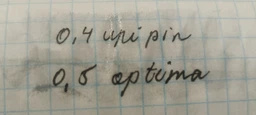 0,4 uni pin
0,5 optima